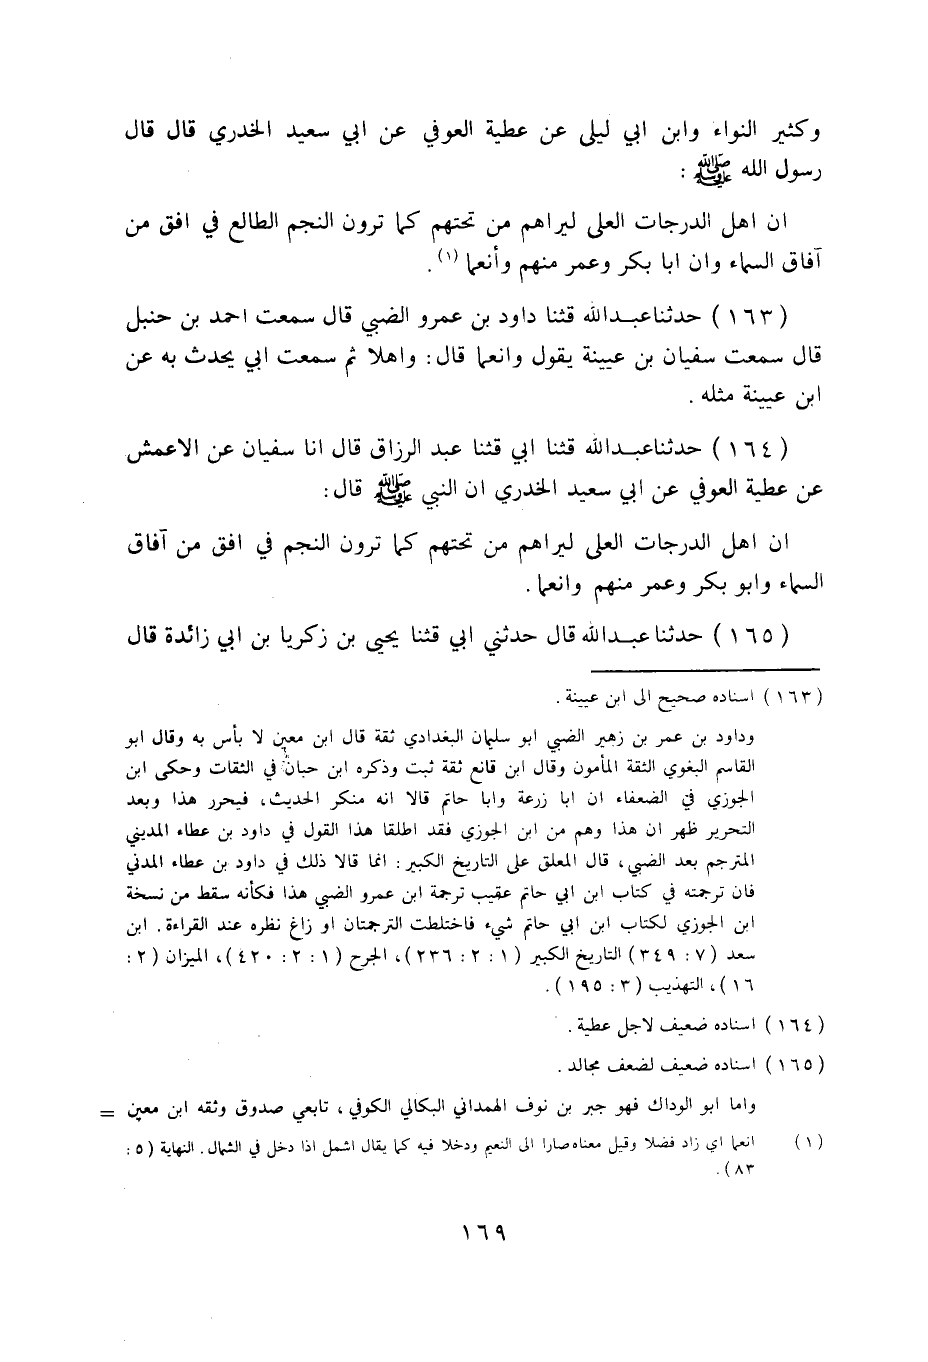 وكثير النواء وابن ابي ليلى عن عطية العوفي عن ابي سعيد الخدري قال قال
رسول الله ﷺ :
ان اهل الدرجات العلى ليراهم من تحتهم كما ترون النجم الطالع في افق من
آفاق السماء وان ابا بكر وعمر منهم وأنعما (١) .
(١٦٣) حدثنا عبدالله قثنا داود بن عمرو الضبي قال سمعت احمد بن حنبل
قال سمعت سفيان بن عيينة يقول وانعما قال : واهلا ثم سمعت ابي يحدث به عن
ابن عيينة مثله .
(١٦٤) حدثنا عبدالله قثنا ابي قثنا عبد الرزاق قال انا سفيان عن الاعمش
عن عطية العوفي عن ابي سعيد الخدري ان النبي ﷺ قال :
ان اهل الدرجات العلى ليراهم من تحتهم كما ترون النجم في افق من آفاق
السماء وابو بكر وعمر منهم وانعما .
(١٦٥) حدثنا عبدالله قال حدثني ابي قثنا يحيى بن زكريا بن ابي زائدة قال
(١٦٣) اسناده صحيح الى ابن عيينة .
وداود بن عمر بن زهير الضبي ابو سليمان البغدادي ثقة قال ابن معين لا بأس به وقال ابو
القاسم البغوي الثقة المأمون وقال ابن قانع ثقة ثبت وذكره ابن حبان في الثقات وحكى ابن
الجوزي في الضعفاء ان ابا زرعة وابا حاتم قالا انه منكر الحديث ، فيحرر هذا وبعد
التحرير ظهر ان هذا وهم من ابن الجوزي فقد اطلقا هذا القول في داود بن عطاء المديني
المترجم بعد الضبي ، قال المعلق على التاريخ الكبير : انما قالا ذلك في داود بن عطاء المدني
فان ترجمته في كتاب ابن ابي حاتم عقيب ترجمة ابن عمرو الضبي هذا فكأنه سقط من نسخة
ابن الجوزي لكتاب ابن ابي حاتم شيء فاختلطت الترجمتان او زاغ نظره عند القراءة . ابن
سعد (٧ : ٣٤٩) التاريخ الكبير (١ : ٢ : ٢٣٦) ، الجرح (١ : ٢ : ٤٢٠) ، الميزان (٢ :
١٦) ، التهذيب (٣ : ١٩٥) .
(١٦٤) اسناده ضعيف لاجل عطية .
(١٦٥) اسناده ضعيف لضعف مجالد .
واما ابو الوداك فهو جبر بن نوف الهمداني البكالي الكوفي ، تابعي صدوق وثقه ابن معين =
(١) انعما اي زاد فضلا وقيل معناه صارا الى النعيم ودخلا فيه كما يقال اشمل اذا دخل في الشمال . النهاية (٥ :
٨٣) .
١٦٩